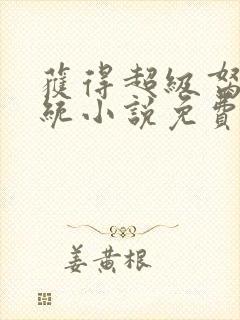 獲得超級
統小說免費
姜黃根